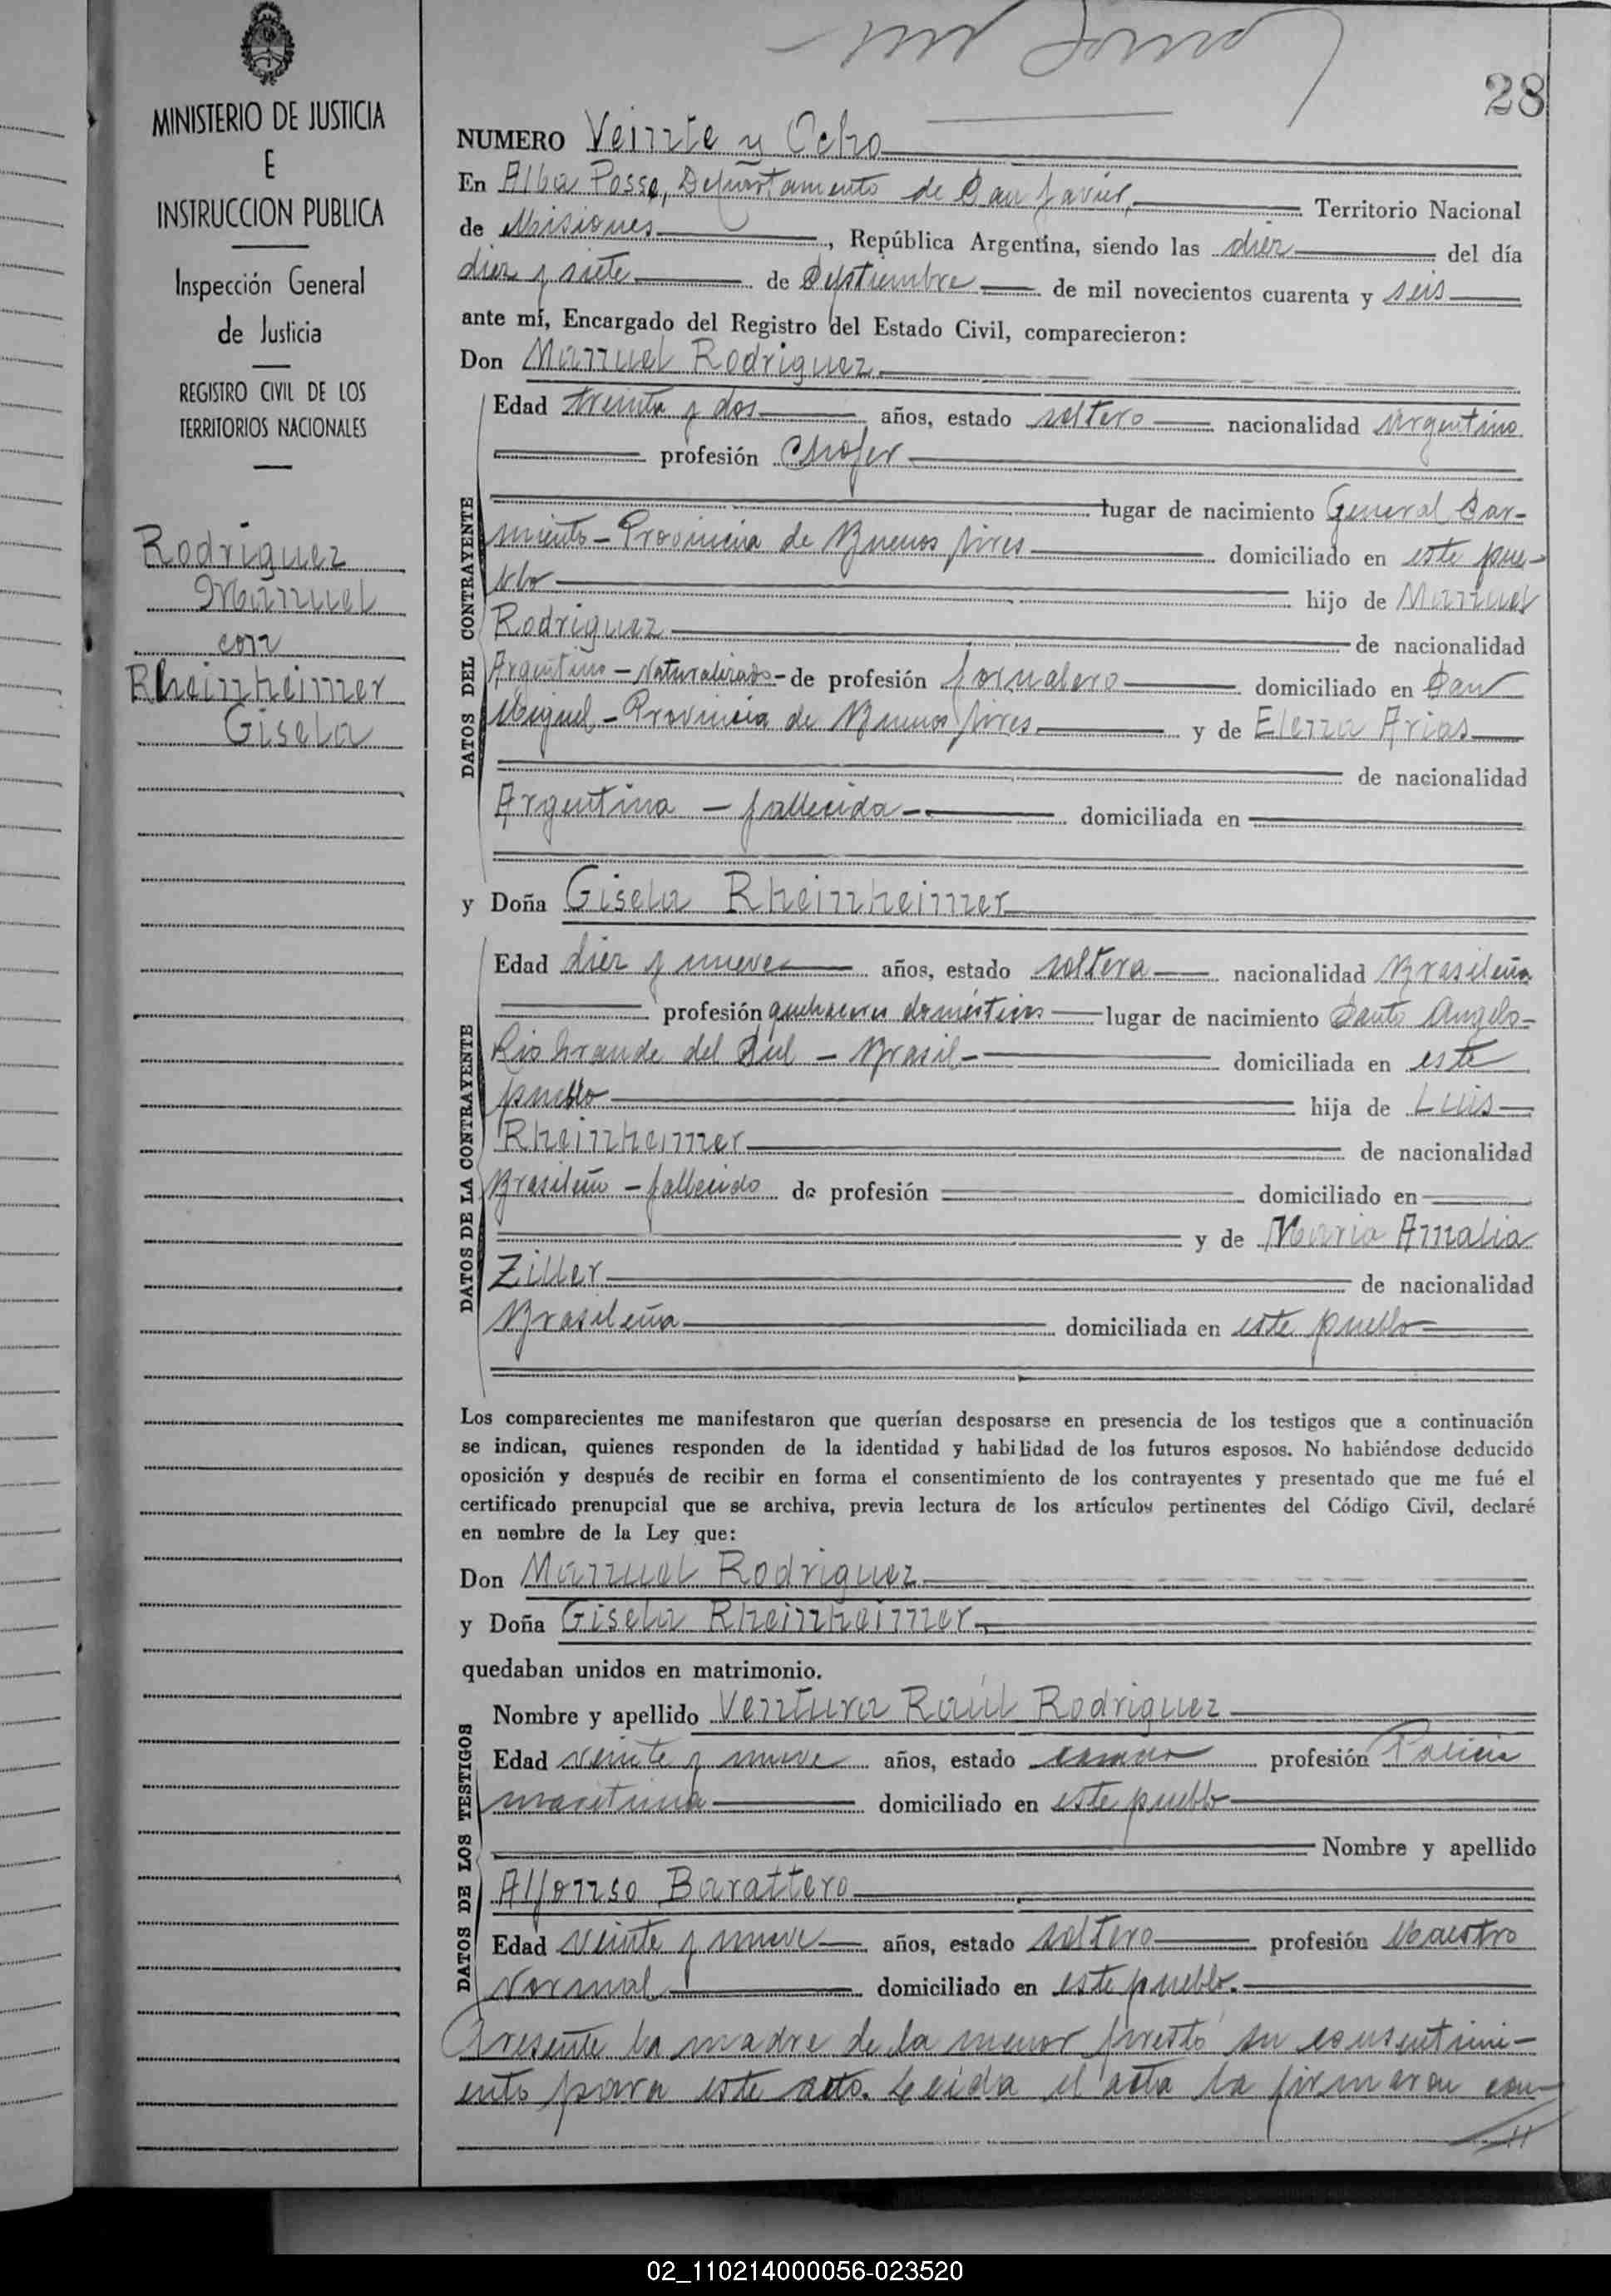 28
MINISTERIO DE JUSTICIA
E
INSTRUCCION PUBLICA
Inspección General
de Justicia
REGISTRO CIVIL DE LOS
TERRITORIOS NACIONALES
Rodriguez
Manuel
con
Rheinheimer
Gisela
NUMERO Veinte y Ocho
En Alba Posse, Departamento de San Javier, Territorio Nacional
de Misiones, República Argentina, siendo las diez del día
diez y siete de Septiembre de mil novecientos cuarenta y seis
ante mí, Encargado del Registro del Estado Civil, comparecieron:
Don Manuel Rodriguez
DATOS DEL CONTRAYENTE
Edad treinta y dos años, estado soltero nacionalidad Argentino
profesión Chofer
lugar de nacimiento General Sar-
miento - Provincia de Buenos Aires domiciliado en este pue-
blo hijo de Manuel
Rodriguez de nacionalidad
Argentino - Naturalizado - de profesión jornalero domiciliado en San
Miguel - Provincia de Buenos Aires y de Elena Arias
de nacionalidad
Argentina - fallecida - domiciliada en
y Doña Gisela Rheinheimer
DATOS DE LA CONTRAYENTE
Edad diez y nueve años, estado soltera nacionalidad Brasileña
profesión quehaceres domésticos lugar de nacimiento Santo Angelo -
Rio Grande del Sul - Brasil - domiciliada en este
pueblo hija de Luis
Rheinheimer de nacionalidad
Brasileño - fallecido de profesión domiciliado en
y de Maria Amalia
Ziller de nacionalidad
Brasileña domiciliada en este pueblo
Los comparecientes me manifestaron que querían desposarse en presencia de los testigos que a continuación
se indican, quienes responden de la identidad y habilidad de los futuros esposos. No habiéndose deducido
oposición y después de recibir en forma el consentimiento de los contrayentes y presentado que me fué el
certificado prenupcial que se archiva, previa lectura de los artículos pertinentes del Código Civil, declaré
en nombre de la Ley que:
Don Manuel Rodriguez
y Doña Gisela Rheinheimer
quedaban unidos en matrimonio.
DATOS DE LOS TESTIGOS
Nombre y apellido Ventura Raúl Rodriguez
Edad veinte y nueve años, estado casado profesión Policia
maritima domiciliado en este pueblo
Nombre y apellido
Alfonso Barattero
Edad veinte y nueve años, estado soltero profesión Maestro
Normal domiciliado en este pueblo.
Presente la madre de la menor prestó su consentimi-
ento para este acto. Leida el acta la firmaron con-
//
02_110214000056-023520